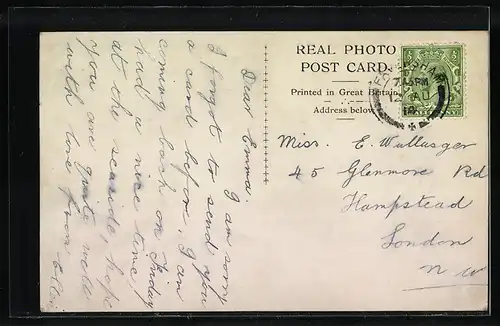 REAL PHOTO
POST CARD.
Printed in Great Britain
Address below
Miss. E.
45 Glenmore Rd
Hampstead
London
N W
Dear Emma.
I am sorry
I forgot to send you
a card before. I am
coming back on Friday
had a nice time
at the seaside, hope
you are quite well
with love from